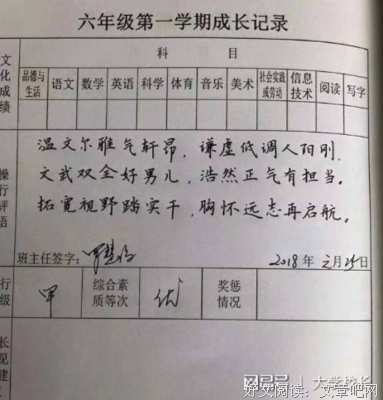 六年级第一学期成长记录
文化成绩
科 目
品德与生活 语文 数学 英语 科学 体育 音乐 美术 社会实践或劳动 信息技术 阅读 写字
操行评语
温文尔雅气轩昂，谦虚低调人阳刚。
文武双全好男儿，浩然正气有担当。
拓宽视野踏实干，胸怀远志再启航。
班主任签字： 2018年 月25日
行级 甲 综合素质等次 优 奖惩情况
长见建
搜狐号|大学校长
好文阅读：文章吧网